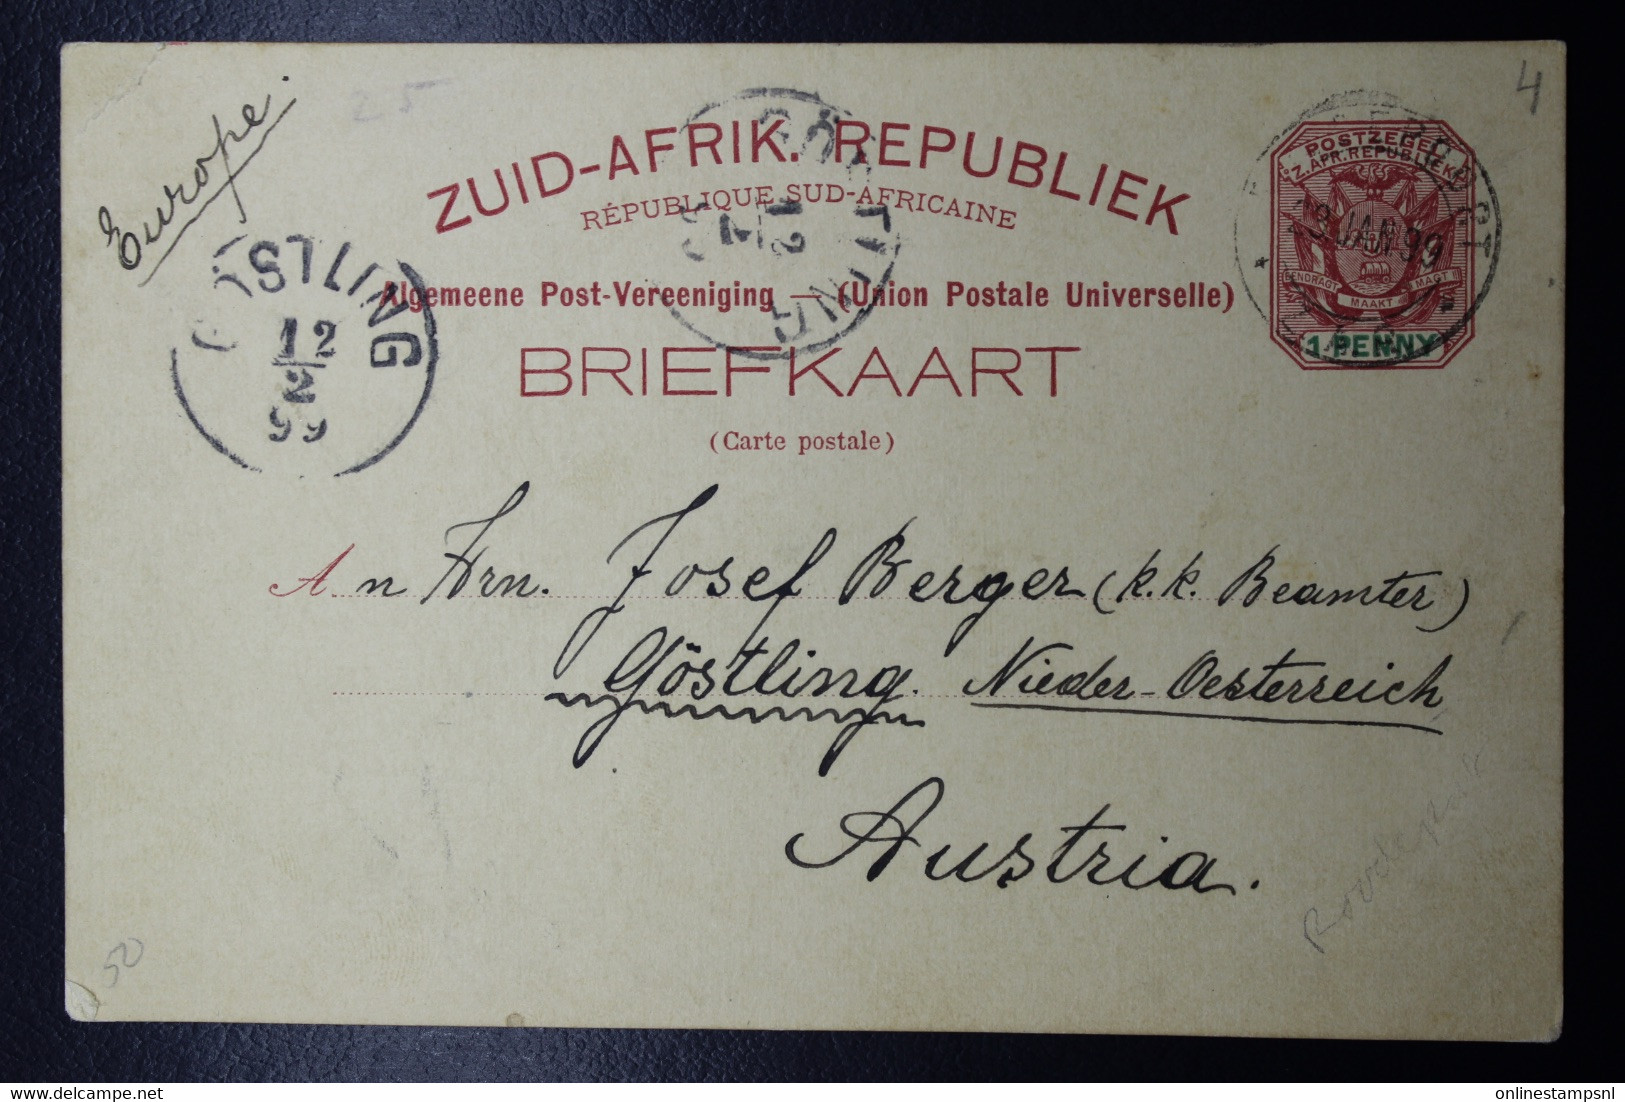 4
25
Europe.
ZUID-AFRIK. REPUBLIEK
RÉPUBLIQUE SUD-AFRICAINE
Algemeene Post-Vereeniging — (Union Postale Universelle)
BRIEFKAART
(Carte postale)
POSTZEGEL
Z. AFR. REPUBLIEK
EENDRAGT MAAKT MAGT
1 PENNY
JAN 99
GÖSTLING
12
2
99
GÖSTLING
12
2
An Hrn. Josef Berger (k. k. Beamter)
Göstling. Nieder-Oesterreich
Austria.
50
onlinestampsnl